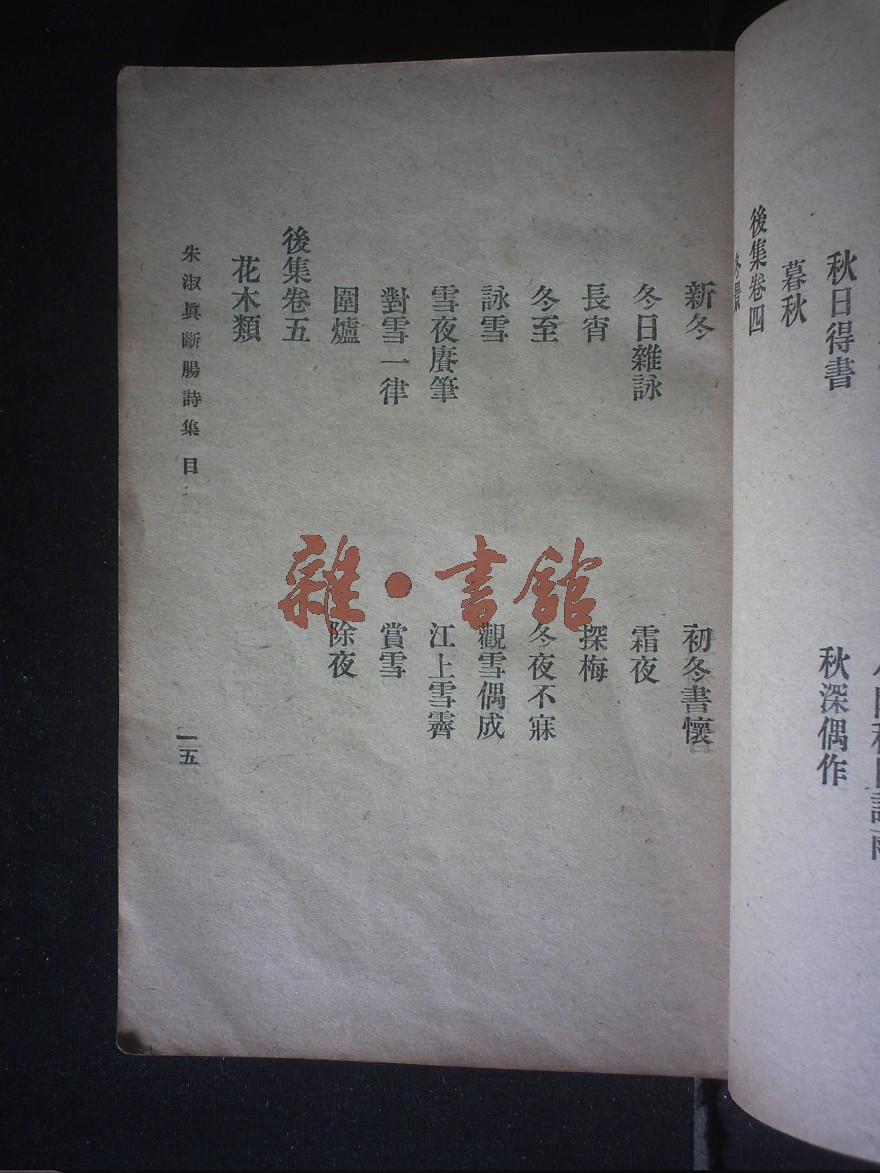 秋日得書
秋深偶作
暮秋
後集卷四
新冬
初冬書懷
冬日雜詠
霜夜
長宵
探梅
冬至
冬夜不寐
詠雪
觀雪偶成
雪夜賡筆
江上雪霽
對雪一律
賞雪
圍爐
除夜
後集卷五
花木類
朱淑眞斷腸詩集 目
一五
雜·書館